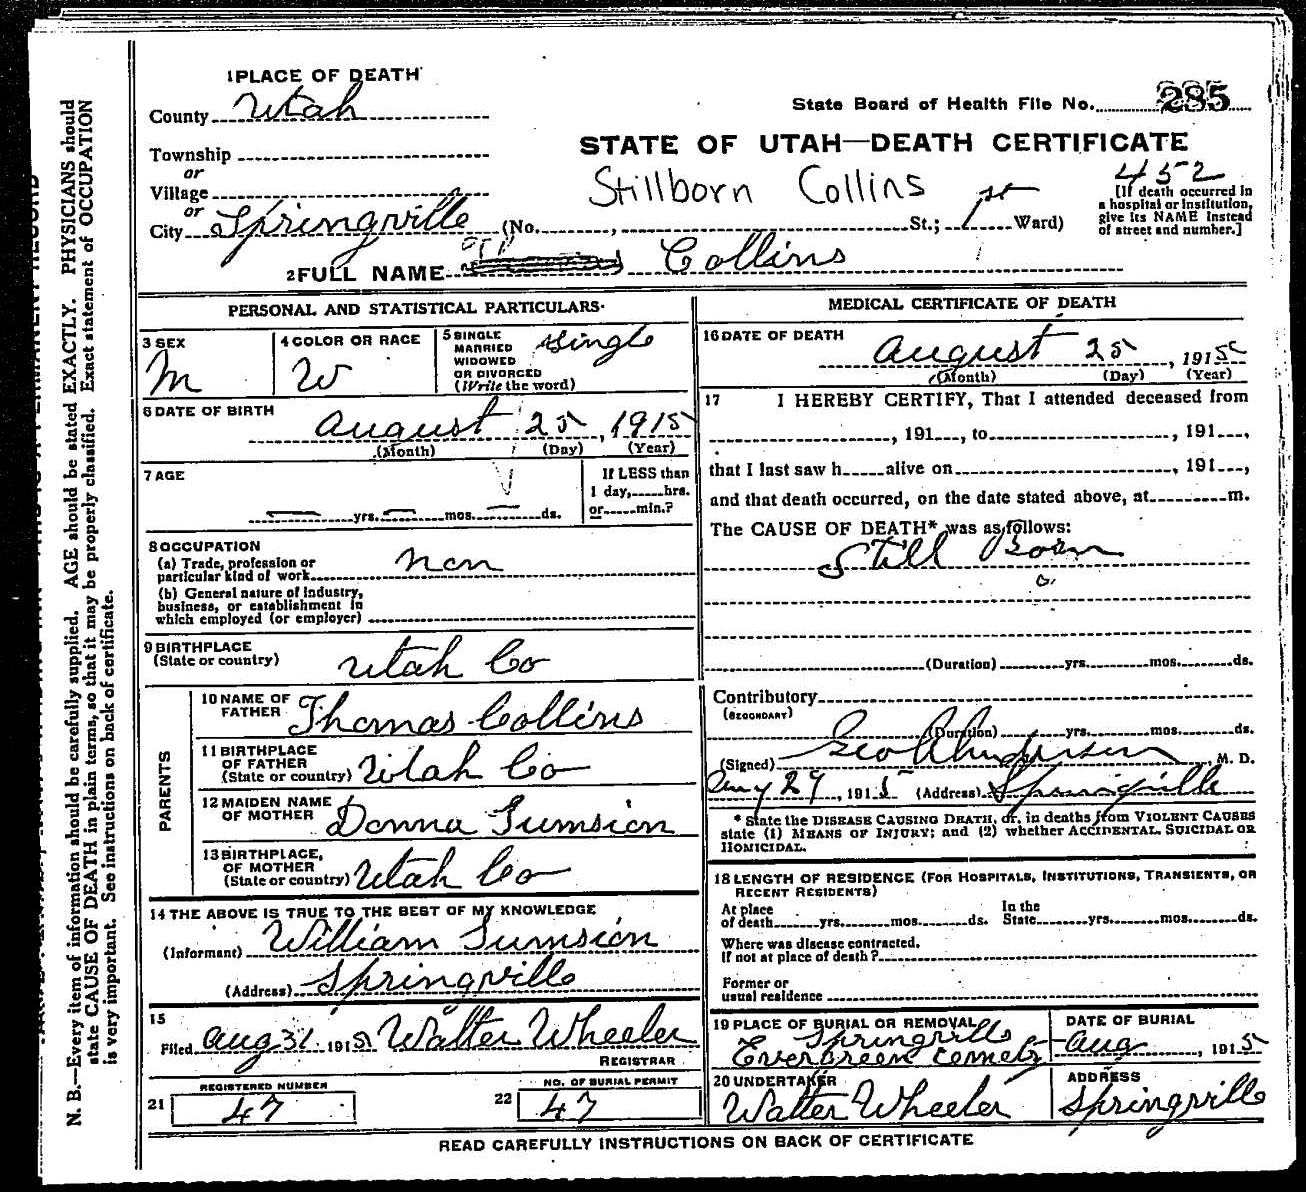 1 PLACE OF DEATH
County Utah
State Board of Health File No. 285
Township
or
Village
or
City Springville (No. , St.; 1st Ward)
STATE OF UTAH—DEATH CERTIFICATE
452
Stillborn Collins
[If death occurred in
a hospital or institution,
give its NAME instead
of street and number.]
2 FULL NAME Collins
PERSONAL AND STATISTICAL PARTICULARS
3 SEX
M
4 COLOR OR RACE
W
5 SINGLE
MARRIED
WIDOWED
OR DIVORCED
(Write the word)
single
6 DATE OF BIRTH
August 25, 1915
(Month) (Day) (Year)
7 AGE
— yrs. — mos. — ds.
If LESS than
1 day, hrs.
or min.?
8 OCCUPATION
(a) Trade, profession or
particular kind of work non
(b) General nature of industry,
business, or establishment in
which employed (or employer)
9 BIRTHPLACE
(State or country) Utah Co
PARENTS
10 NAME OF
FATHER Thomas Collins
11 BIRTHPLACE
OF FATHER
(State or country) Utah Co
12 MAIDEN NAME
OF MOTHER Donna Sumsion
13 BIRTHPLACE,
OF MOTHER
(State or country) Utah Co
14 THE ABOVE IS TRUE TO THE BEST OF MY KNOWLEDGE
(Informant) William Sumsion
(Address) Springville
15
Filed Aug 31 1915 Walter Wheeler
REGISTRAR
REGISTERED NUMBER
21 47
NO. OF BURIAL PERMIT
22 47
MEDICAL CERTIFICATE OF DEATH
16 DATE OF DEATH
August 25, 1915
(Month) (Day) (Year)
17 I HEREBY CERTIFY, That I attended deceased from
, 191 , to , 191 ,
that I last saw h alive on , 191 ,
and that death occurred, on the date stated above, at m.
The CAUSE OF DEATH* was as follows:
Still Born
(Duration) yrs. mos. ds.
Contributory
(SECONDARY)
(Duration) yrs. mos. ds.
(Signed) Geo A Anderson, M. D.
Aug 29, 1915 (Address) Springville
* State the DISEASE CAUSING DEATH, or, in deaths from VIOLENT CAUSES
state (1) MEANS OF INJURY; and (2) whether ACCIDENTAL, SUICIDAL OR
HOMICIDAL.
18 LENGTH OF RESIDENCE (FOR HOSPITALS, INSTITUTIONS, TRANSIENTS, OR
RECENT RESIDENTS)
At place
of death yrs. mos. ds.
In the
State yrs. mos. ds.
Where was disease contracted.
If not at place of death?
Former or
usual residence
19 PLACE OF BURIAL OR REMOVAL
Springville
Evergreen Cemety
DATE OF BURIAL
Aug , 1915
20 UNDERTAKER
Walter Wheeler
ADDRESS
Springville
READ CAREFULLY INSTRUCTIONS ON BACK OF CERTIFICATE
N. B.—Every item of information should be carefully supplied. AGE should be stated EXACTLY. PHYSICIANS should
state CAUSE OF DEATH in plain terms, so that it may be properly classified. Exact statement of OCCUPATION
is very important. See instructions on back of certificate.